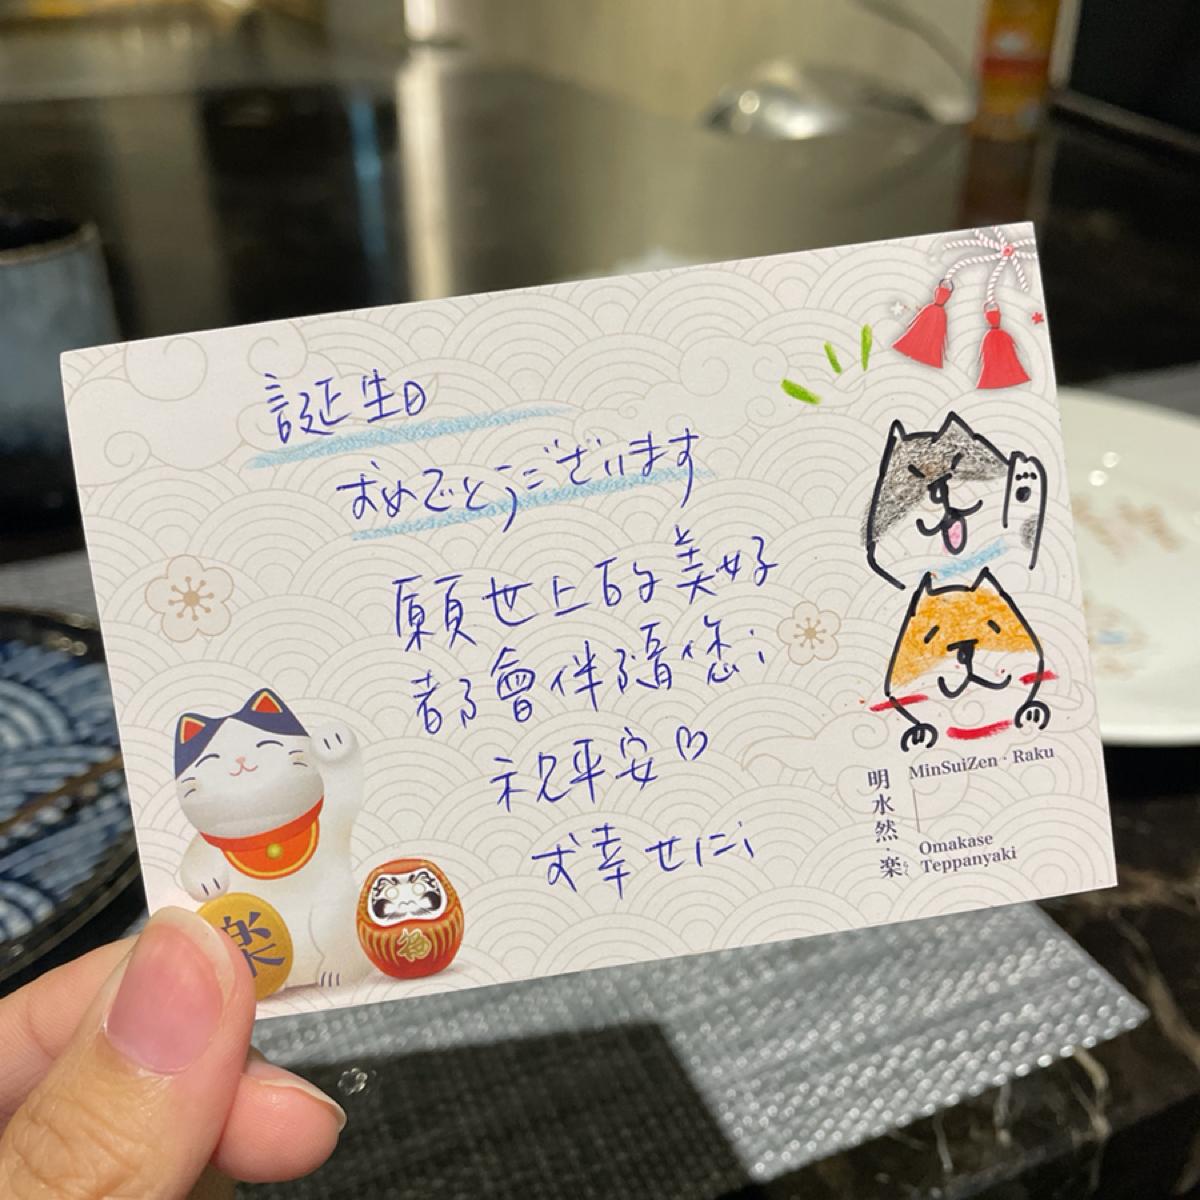 誕生日
おめでとうございます
願世上的美好
都會伴隨您；
祝平安♡
お幸せに；
MinSuiZen · Raku
明水然·楽
らく
Omakase
Teppanyaki
楽
福